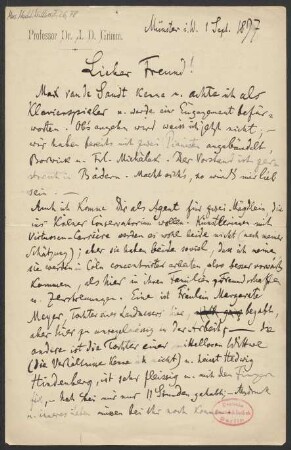 Professor Dr. J. O. Grimm.
Münster i. W. 1 Sept. 1897
Lieber Freund!
Max van de Sandt kenne u. achte ich als
Klavierspieler u. werde ein Engagement befür-
worten. Ob's angehn wird weiss ich jetzt nicht;
wir haben bereits mit zwei angebändelt,
Borwick u. Frl. Michalek. Der Vorstand ist
in Bädern. Macht sich's, so wird's mir lieb
sein.
Auch ich komme Dir als Agent für zwei Mägdlein, die
ins Kölner Conservatorium wollen. Künstlerinnen mit
Virtuosen-Carrière werden es wohl beide nicht (nach meiner
Schätzung); aber sie haben beide soviel, dass ich meine,
sie werden in Cöln concentrirter arbeiten also besser vorwärts
kommen, als hier in ihren Familien
u. Zerstreuungen. Eine ist Fräulein Margarete
Meyer, Tochter eines begabt,
aber hier zu unregelmässig in der Arbeit; die
andere ist die Tochter einer mittellosen Wittwe
(die Verhältnisse kenne ich nicht) u. heisst Hedwig
Hindenberg, ist sehr fleissig u. mit den Fingern
fix, hat bei mir nur 11 Stunden gehabt;
u. müssen bei Ihr noch kommen